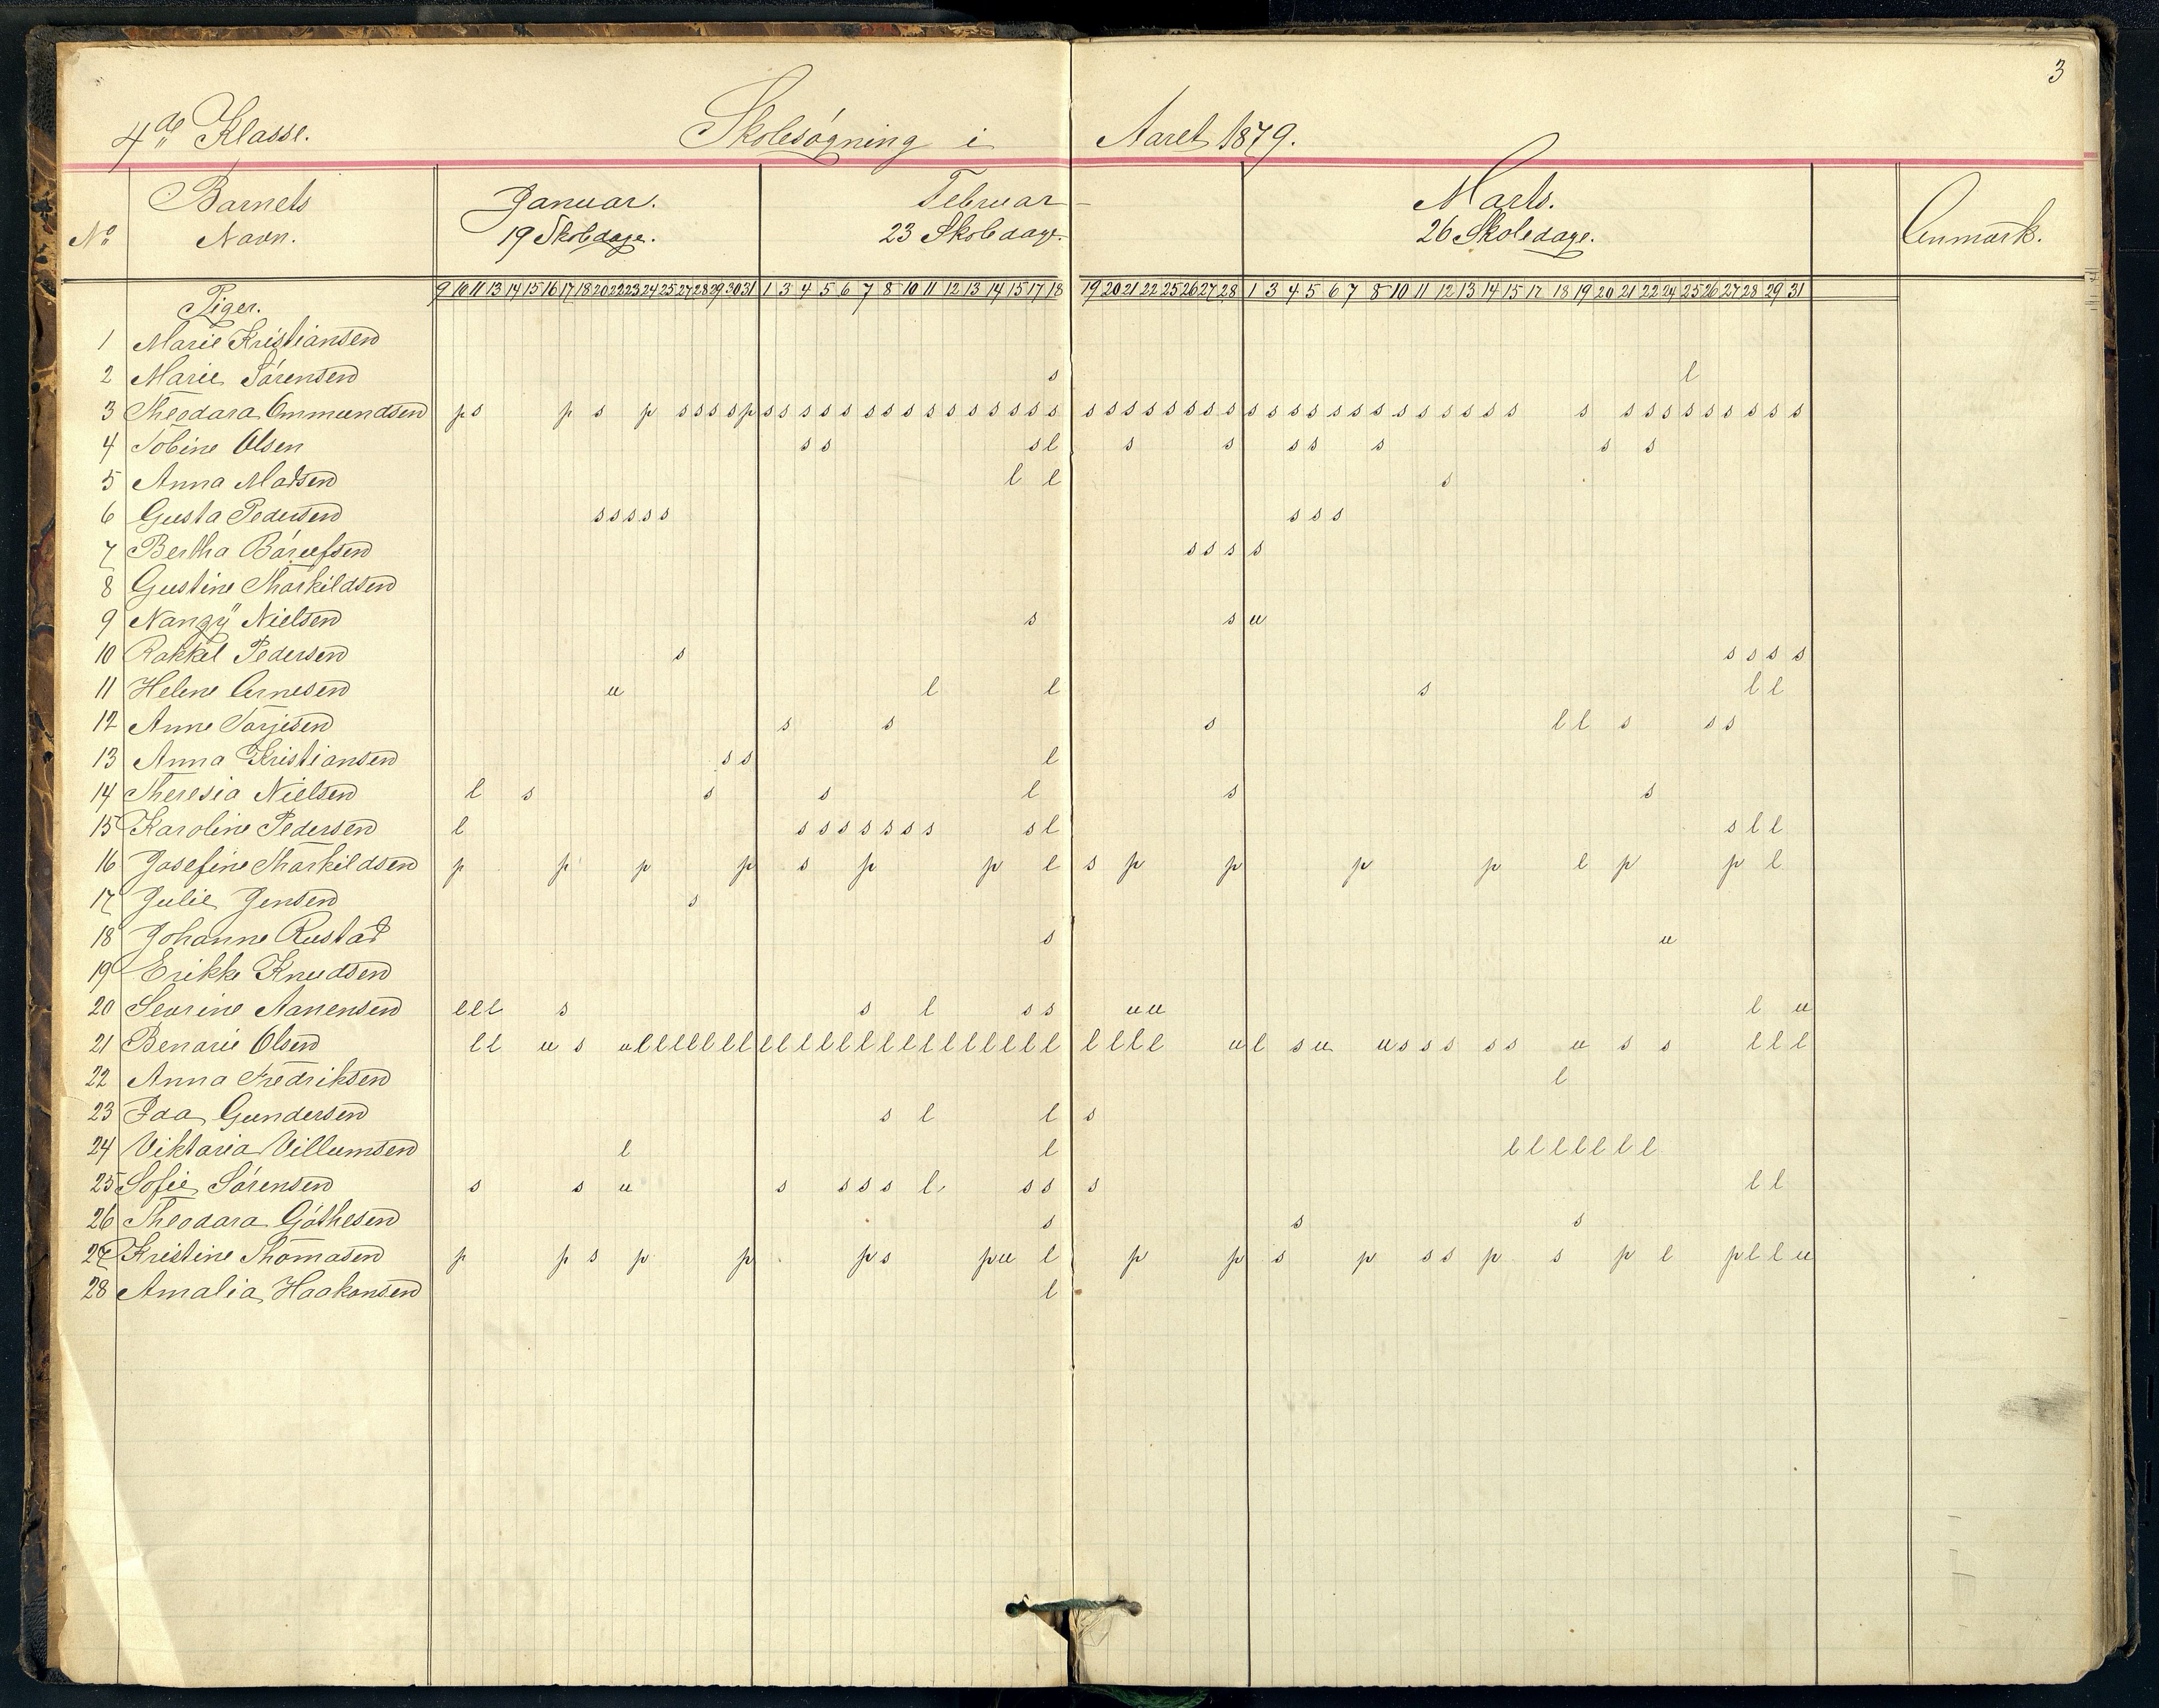 3
4de Klasse. Skolesøgning i Aaret 1879.
No Barnets Navn. Januar. 19 Skoledage. Februar 23 Skoledage. Marts. 26 Skoledage. Anmærk.
Piger. 9 10 11 13 14 15 16 17 18 20 22 23 24 25 27 28 29 30 31 1 3 4 5 6 7 8 10 11 12 13 14 15 17 18 19 20 21 22 25 26 27 28 1 3 4 5 6 7 8 10 11 12 13 14 15 17 18 19 20 21 22 24 25 26 27 28 29 31
1 Marie Kristiansen
2 Marie Sørensen s l
3 Theodora Ommundsen p s p s p s s s s p s s s s s s s s s s s s s s s s s s s s s s s s s s s s s s s s s s s s s s s s s s s s s s
4 Tobine Olsen s s s l s s s s s s s
5 Anna Madsen l l s
6 Gusta Pedersen s s s s s s s s
7 Bertha s s s s
8 Gustine Thorkildsen
9 Nangÿ Nielsen s s u
10 Rakkel Pedersen s s s s s
11 Helene Arnesen u l l s l l
12 Anne Torjesen s s s l l s s s
13 Anna Kristiansen s s l
14 Theresia Nielsen l s s s l s s
15 Karoline Pedersen l s s s s s s s s l s l l
16 Josefine Thorkildsen p p p p s p p l s p p p p l p p l
17 Julie Jensen s
18 Johanne Rustad s u
19 Erikke Knudsen
20 Sevrine Aanensen l l l s s l s s u u l u
21 Benarie Olsen l l u s u l l l l l l l l l l l l l l l l l l l l l l l l l l u l s u u s s s s s u s s l l l
22 Anna Fredriksen l
23 Ida Gundersen s l l s
24 Viktoria Villumsen l l l l l l l l l
25 Sofie Sørensen s s u s s s s l s s s l l
26 Theodora Gøthesen s s s
27 Kristine Thomasen p p s p p p s p u l p p s p s s p s p l p l l u
28 Amalia Haakonsen l